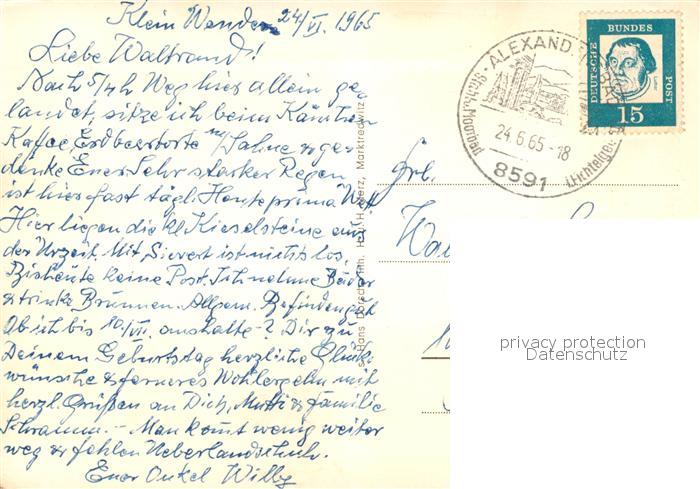 Klein Wenden 24/VI. 1965
Liebe Waltraud!
Nach 5/4 h Weg hier allein ge-
landet, sitze ich beim Kännchen
Kaffee Erdbeertorte m/Sahne & ge-
denke Euer. Sehr starker Regen
ist hier fast tägl. Heute prima Wett
Hier liegen die kl. Kieselsteine aus
der Urzeit. Mit Sievert ist nichts los,
Bisheute keine Post. Ich nehme Bäder
& trinke Brunnen. Allgem. Befinden gut
Ob ich bis 10./VII. aushalte-? Dir zu
Deinem Geburtstag herzliche Glück-
wünsche & ferneres Wohlergehn mit
herzl. Grüßen an Dich, Mutti & Familie
Schramm. - Man komt wenig weiter
weg & fehlen Ueberlandschuh.
Euer Onkel Willy
Hans Marktredwitz
ALEXAND
24.6.65-18
8591
DEUTSCHE BUNDES POST
15
Frl.
Wa
privacy protection
Datenschutz